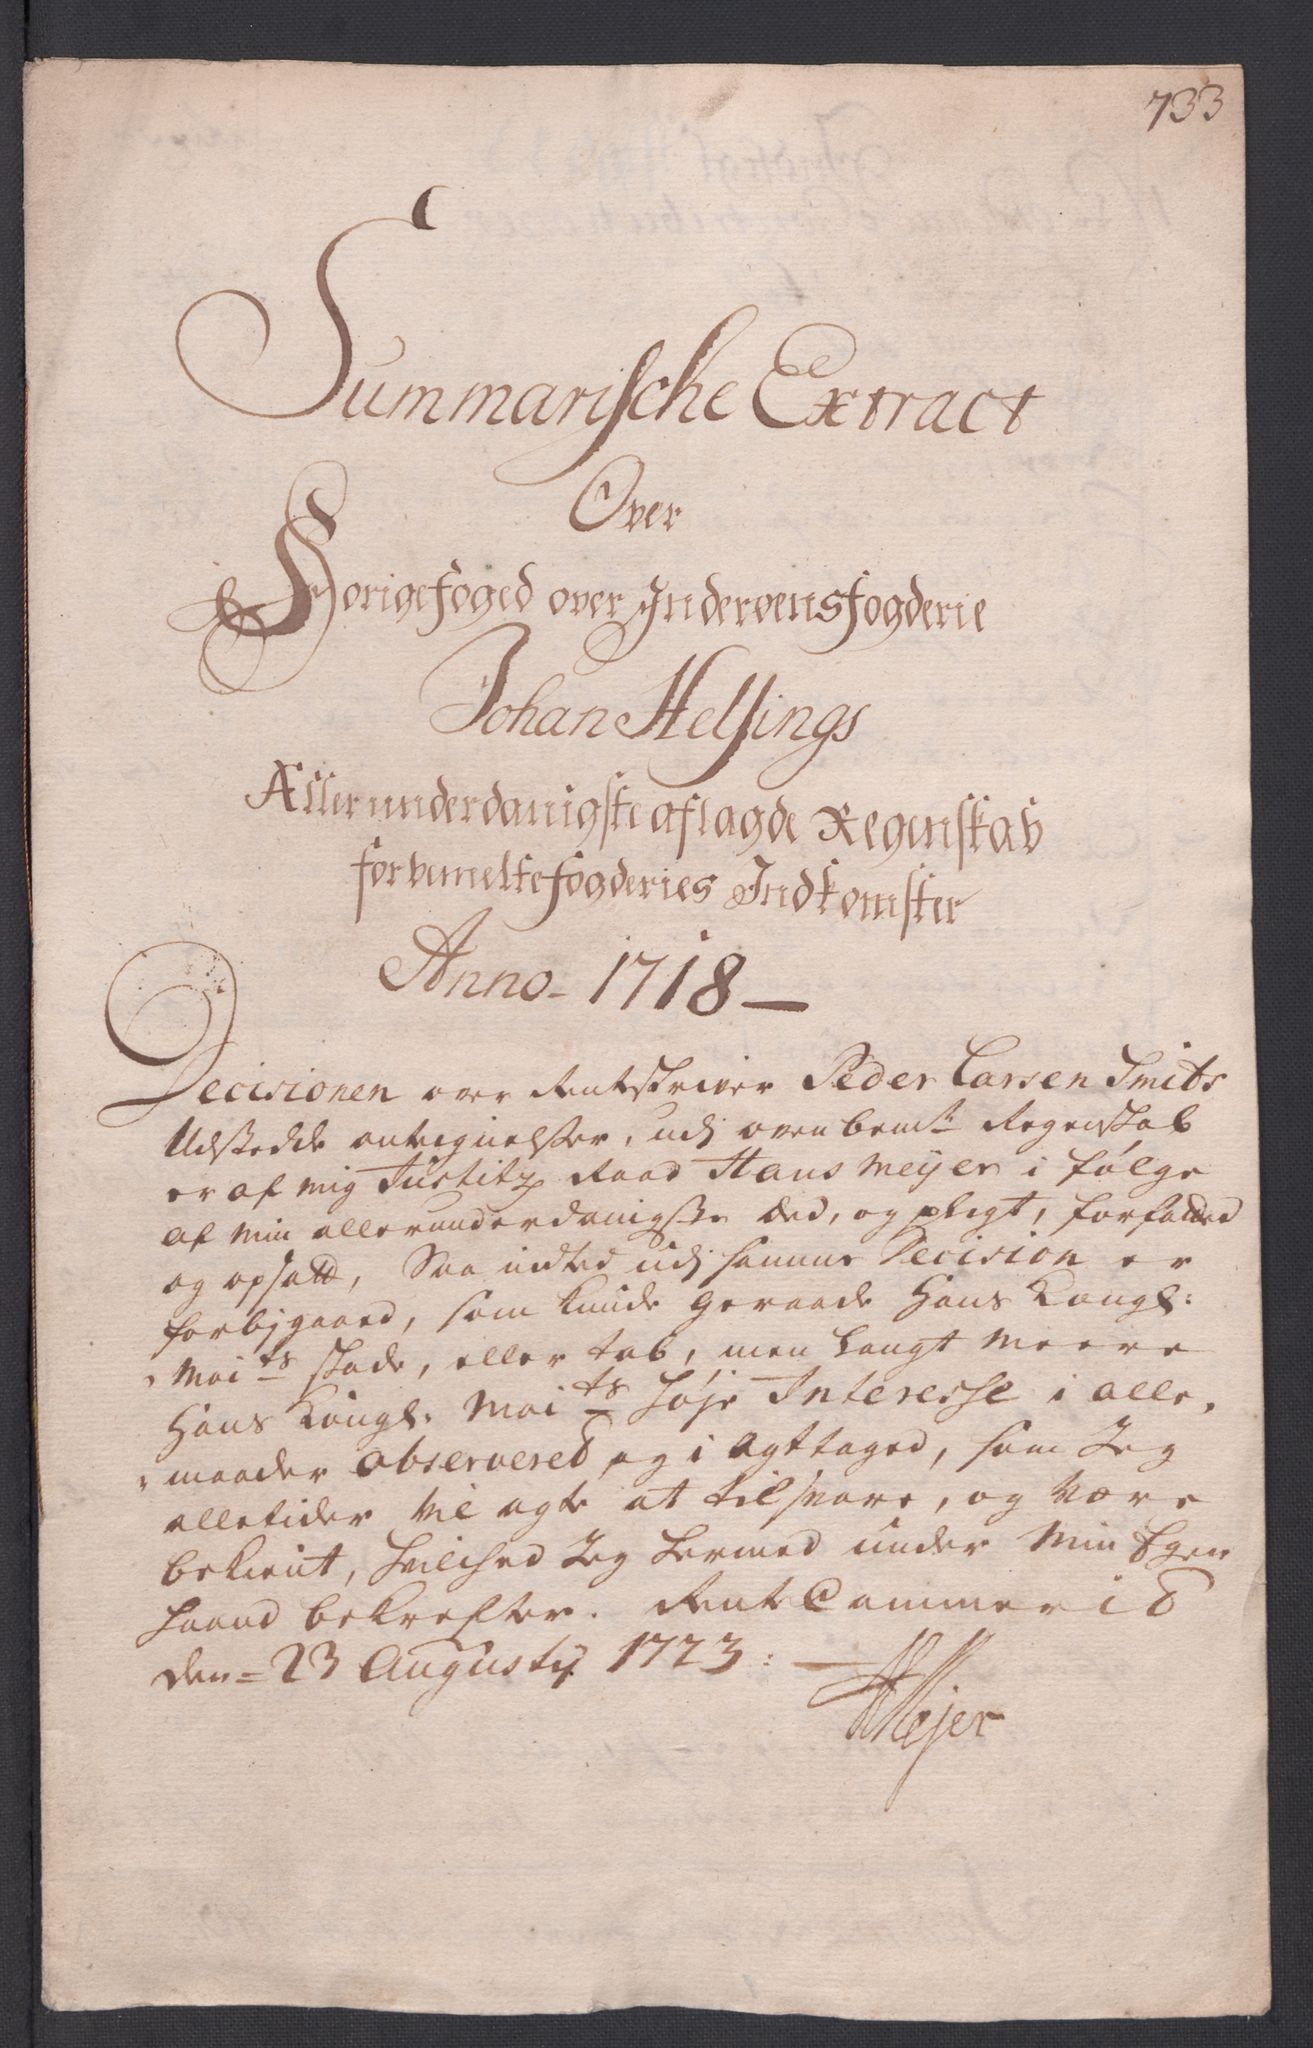 733
Summarische Extract
Over
Forige foged over Inderøens fogderie
Johan Helsings
Allerunderdanigste aflagde Regenskab
for bemelte fogderies Indkomster
Anno - 1718 -
Decisionen over Rentskriver Peder Larsen Smits
Udstedde antegnelser, udj ovenbemte Regenskab
er af mig Justitz Raad Hans Meyer i følge
af min allerunderdanigste æed, og pligt, forfatted
og opsatt, Saa intted udj samme Decision er
forbjgaaed, som kunde geraade Hans Kongl:
Maits skade, eller tab, men langt meere
Hans Kongl. Maits høje Interesse i alle
maader observered og i agttaged, som Jeg
alletider vil agte at tilsvare, og være
bekient, hvilched Jeg hermed under Min Egen
haand bekrefter. Rente Cammeret
den = 23 Augustij 1723:
HMejer